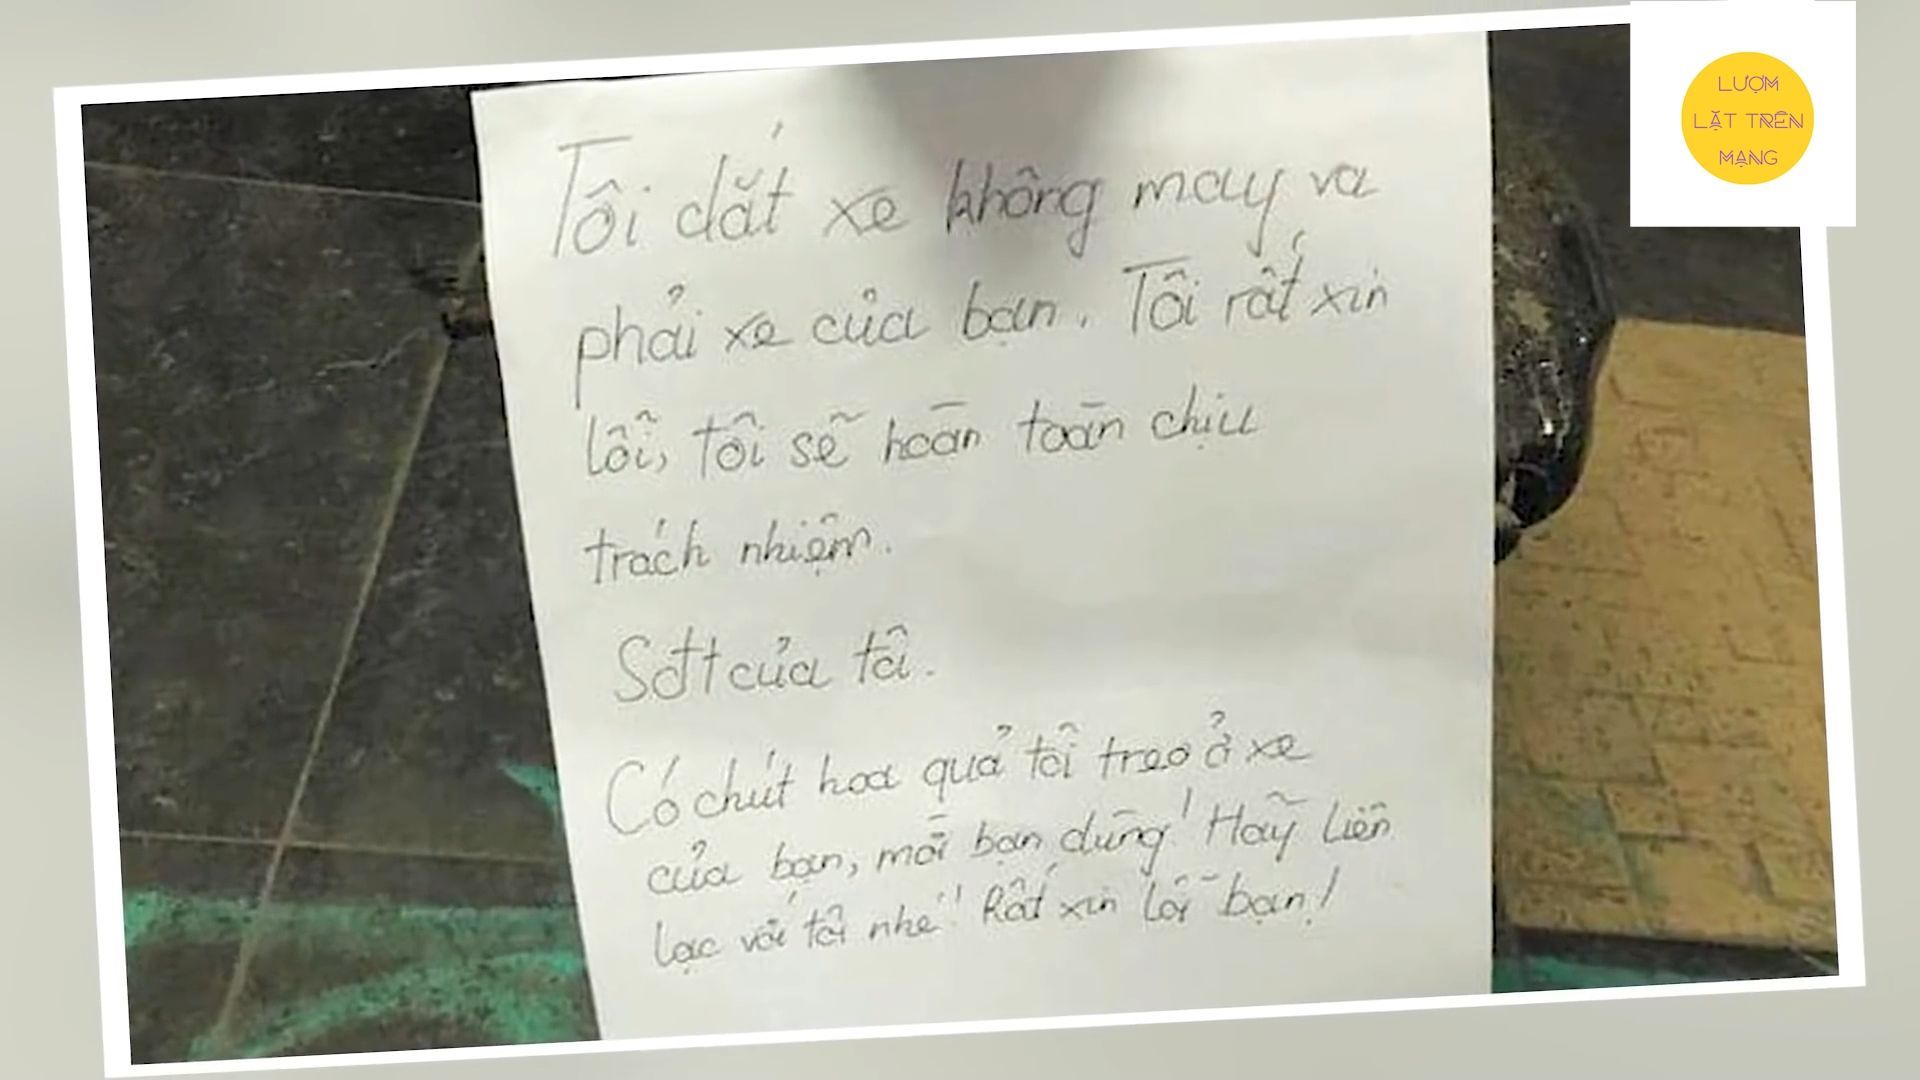 LƯỢM
LẶT TRÊN
MẠNG
Tôi dắt xe không may va
phải xe của bạn. Tôi rất xin
lỗi, tôi sẽ hoàn toàn chịu
trách nhiệm.
Sđt của tôi.
Có chút hoa quả tôi treo ở xe
của bạn, mời bạn dùng! Hãy liên
lạc với tôi nhé! Rất xin lỗi bạn!